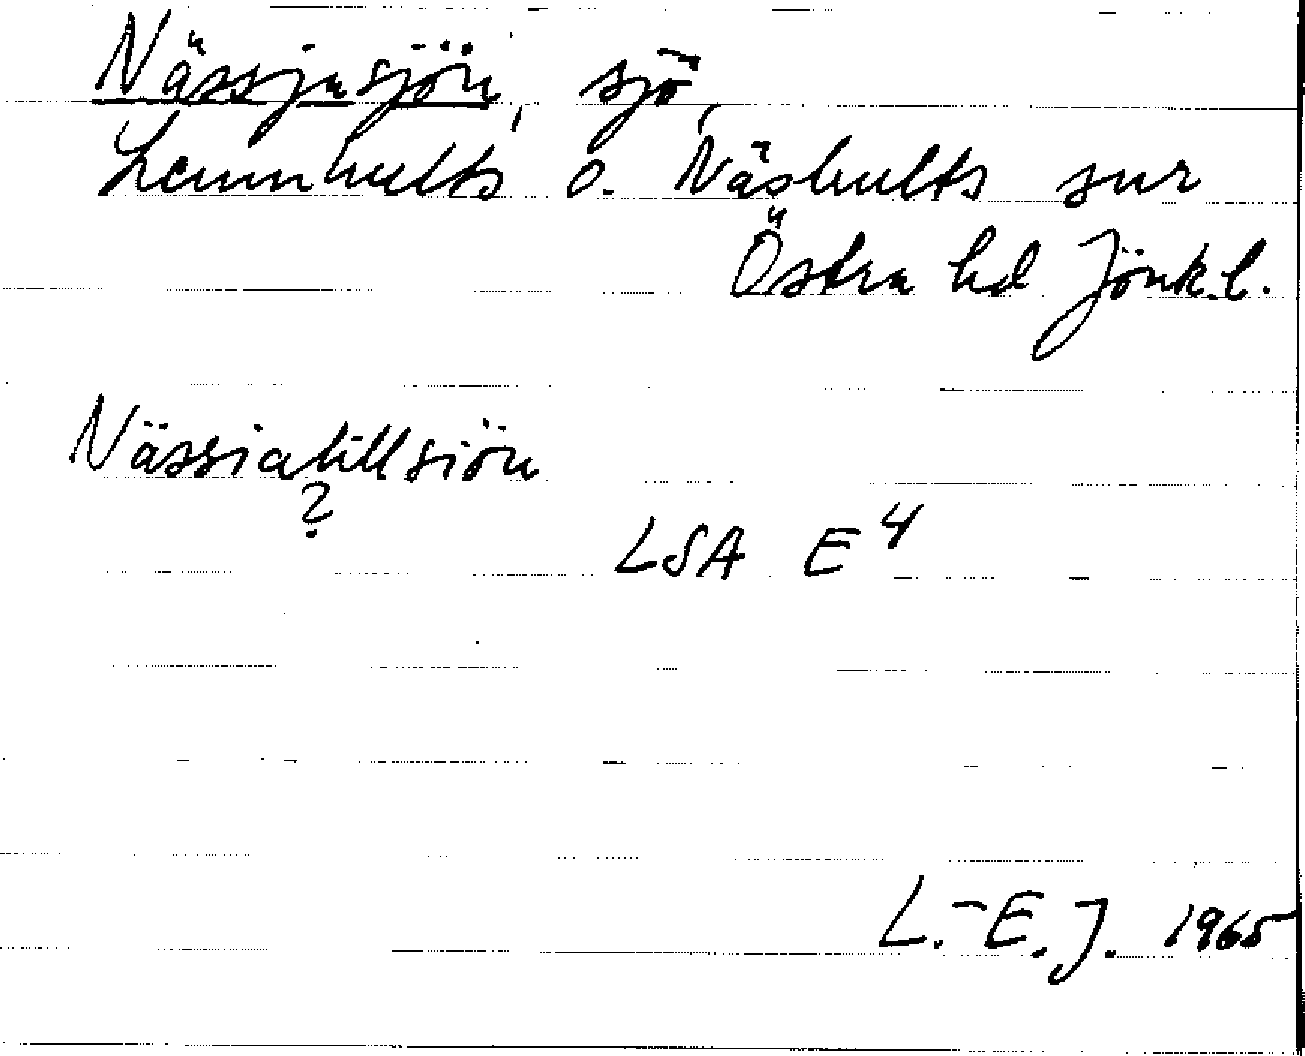 Nässjasjön, sjö,
Lemnhults o. Näshults snr
Östra hd Jönk.l.
Nässiatillsiön
?
LSA E4
L.-E.J. 1965